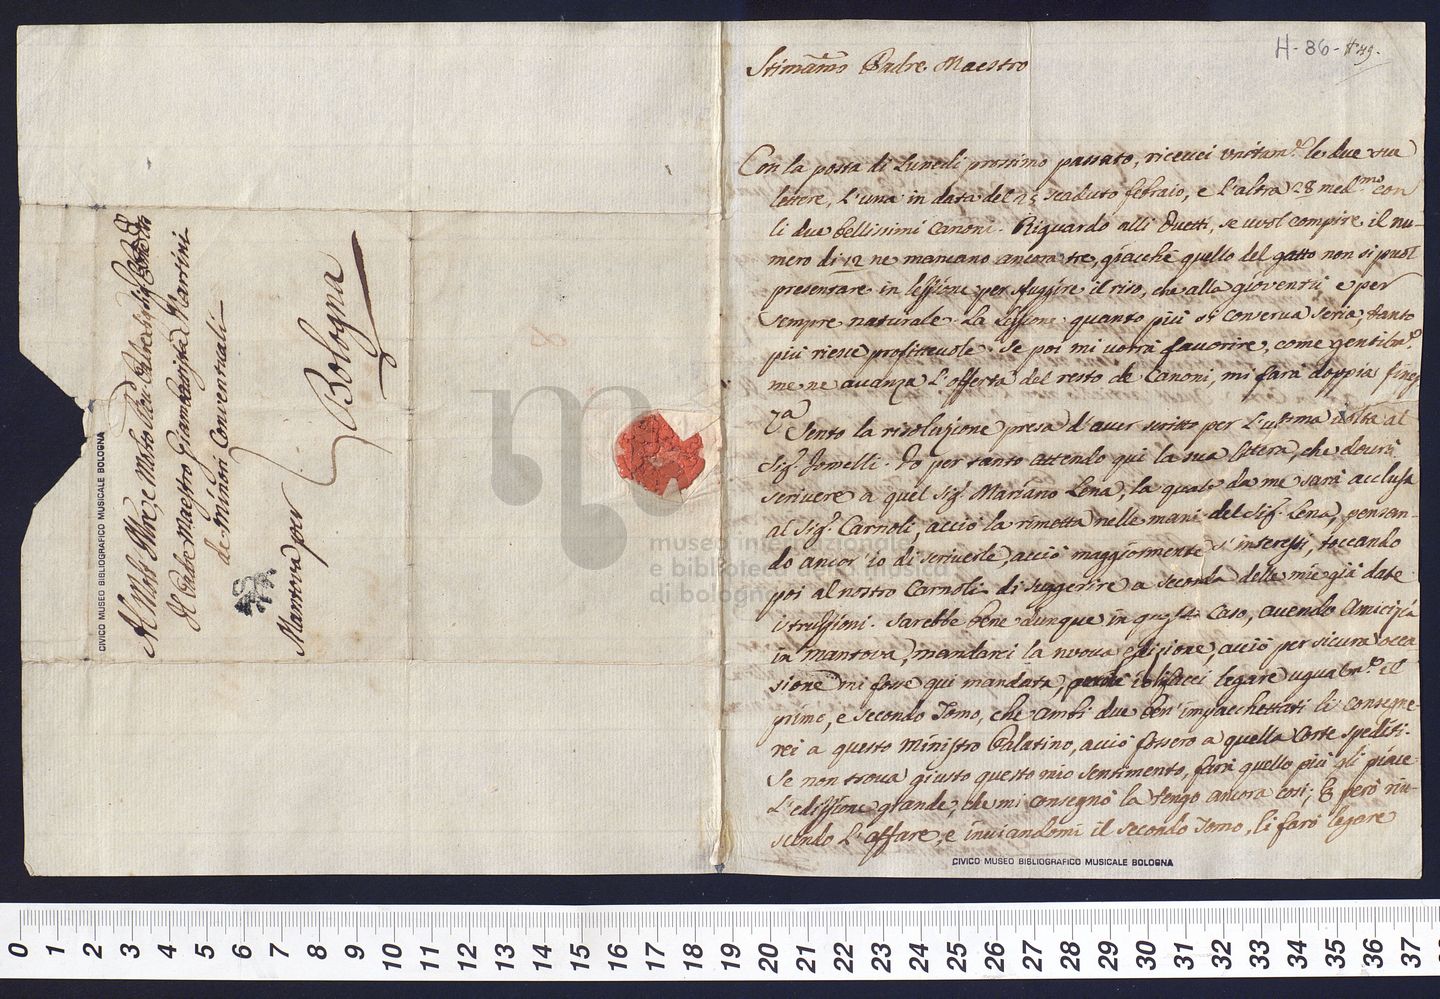 Al Molt. Illre, e Molto Rev. Padre
Il Padre Maestro Giambattista Martini
de Minori Conventuali
Mantova per
Bologna
CIVICO MUSEO BIBLIOGRAFICO MUSICALE BOLOGNA
museo internazionale
e biblioteca della musica
di bologna
H-86-
Stimamo Padre Maestro
Con la posta di Lunedi prossimo passato, ricevei unitam.e le due sue
lettere, l'una in data del 25 scaduto febraio, e l'altra 28 med.mo con
li due bellissimi Canoni. Riguardo alli Duetti, se vuol compire il nu-
mero di 12 ne mancano ancora tre, giacchè quello del gatto non si puol
presentare in lessione per fuggire il riso, che alla gioventù e per
sempre naturale. La Lessione quanto più si conserva seria, tanto
più riesce profittevole. Se poi mi vorrà favorire, come gentilm.e
me ne avanza l'offerta del resto de Canoni, mi farà doppia finez
za Sento la risoluzione presa d'aver scritto per l'ultima volta al
Sig.r Jomelli. Io per tanto attendo qui la sua lettera, che dovrà
scrivere a quel Sig.r Mariano Lena, la quale da me sarà acclusa
al Sig.r Carnoli, acciò la rimetta nelle mani del Sig.r Lena, pensan-
do ancor io di scriverle, acciò maggiormente s'interessi, toccando
poi al nostro Carnoli di suggerire a seconda delle mie già date
istrussioni. Sarebbe bene dunque in questo caso, avendo Amicizia
in Mantova, mandarci la nuova edizione, acciò per sicura occa
sione mi fosse qui mandata, legare ugualm.e il
primo, e secondo Tomo, che ambi due ben'impacchettati li consegne-
rei a questo Ministro Palatino, acciò fossero a quella Corte spediti.
Se non trova giusto questo mio sentimento, farà quello più gli piace
L'edissione grande, che mi consegnò la tengo ancora così; E però riu-
scendo l'affare, e inviandomi il secondo Tomo, li farò legare
CIVICO MUSEO BIBLIOGRAFICO MUSICALE BOLOGNA
0 1 2 3 4 5 6 7 8 9 10 11 12 13 14 15 16 17 18 19 20 21 22 23 24 25 26 27 28 29 30 31 32 33 34 35 36 37